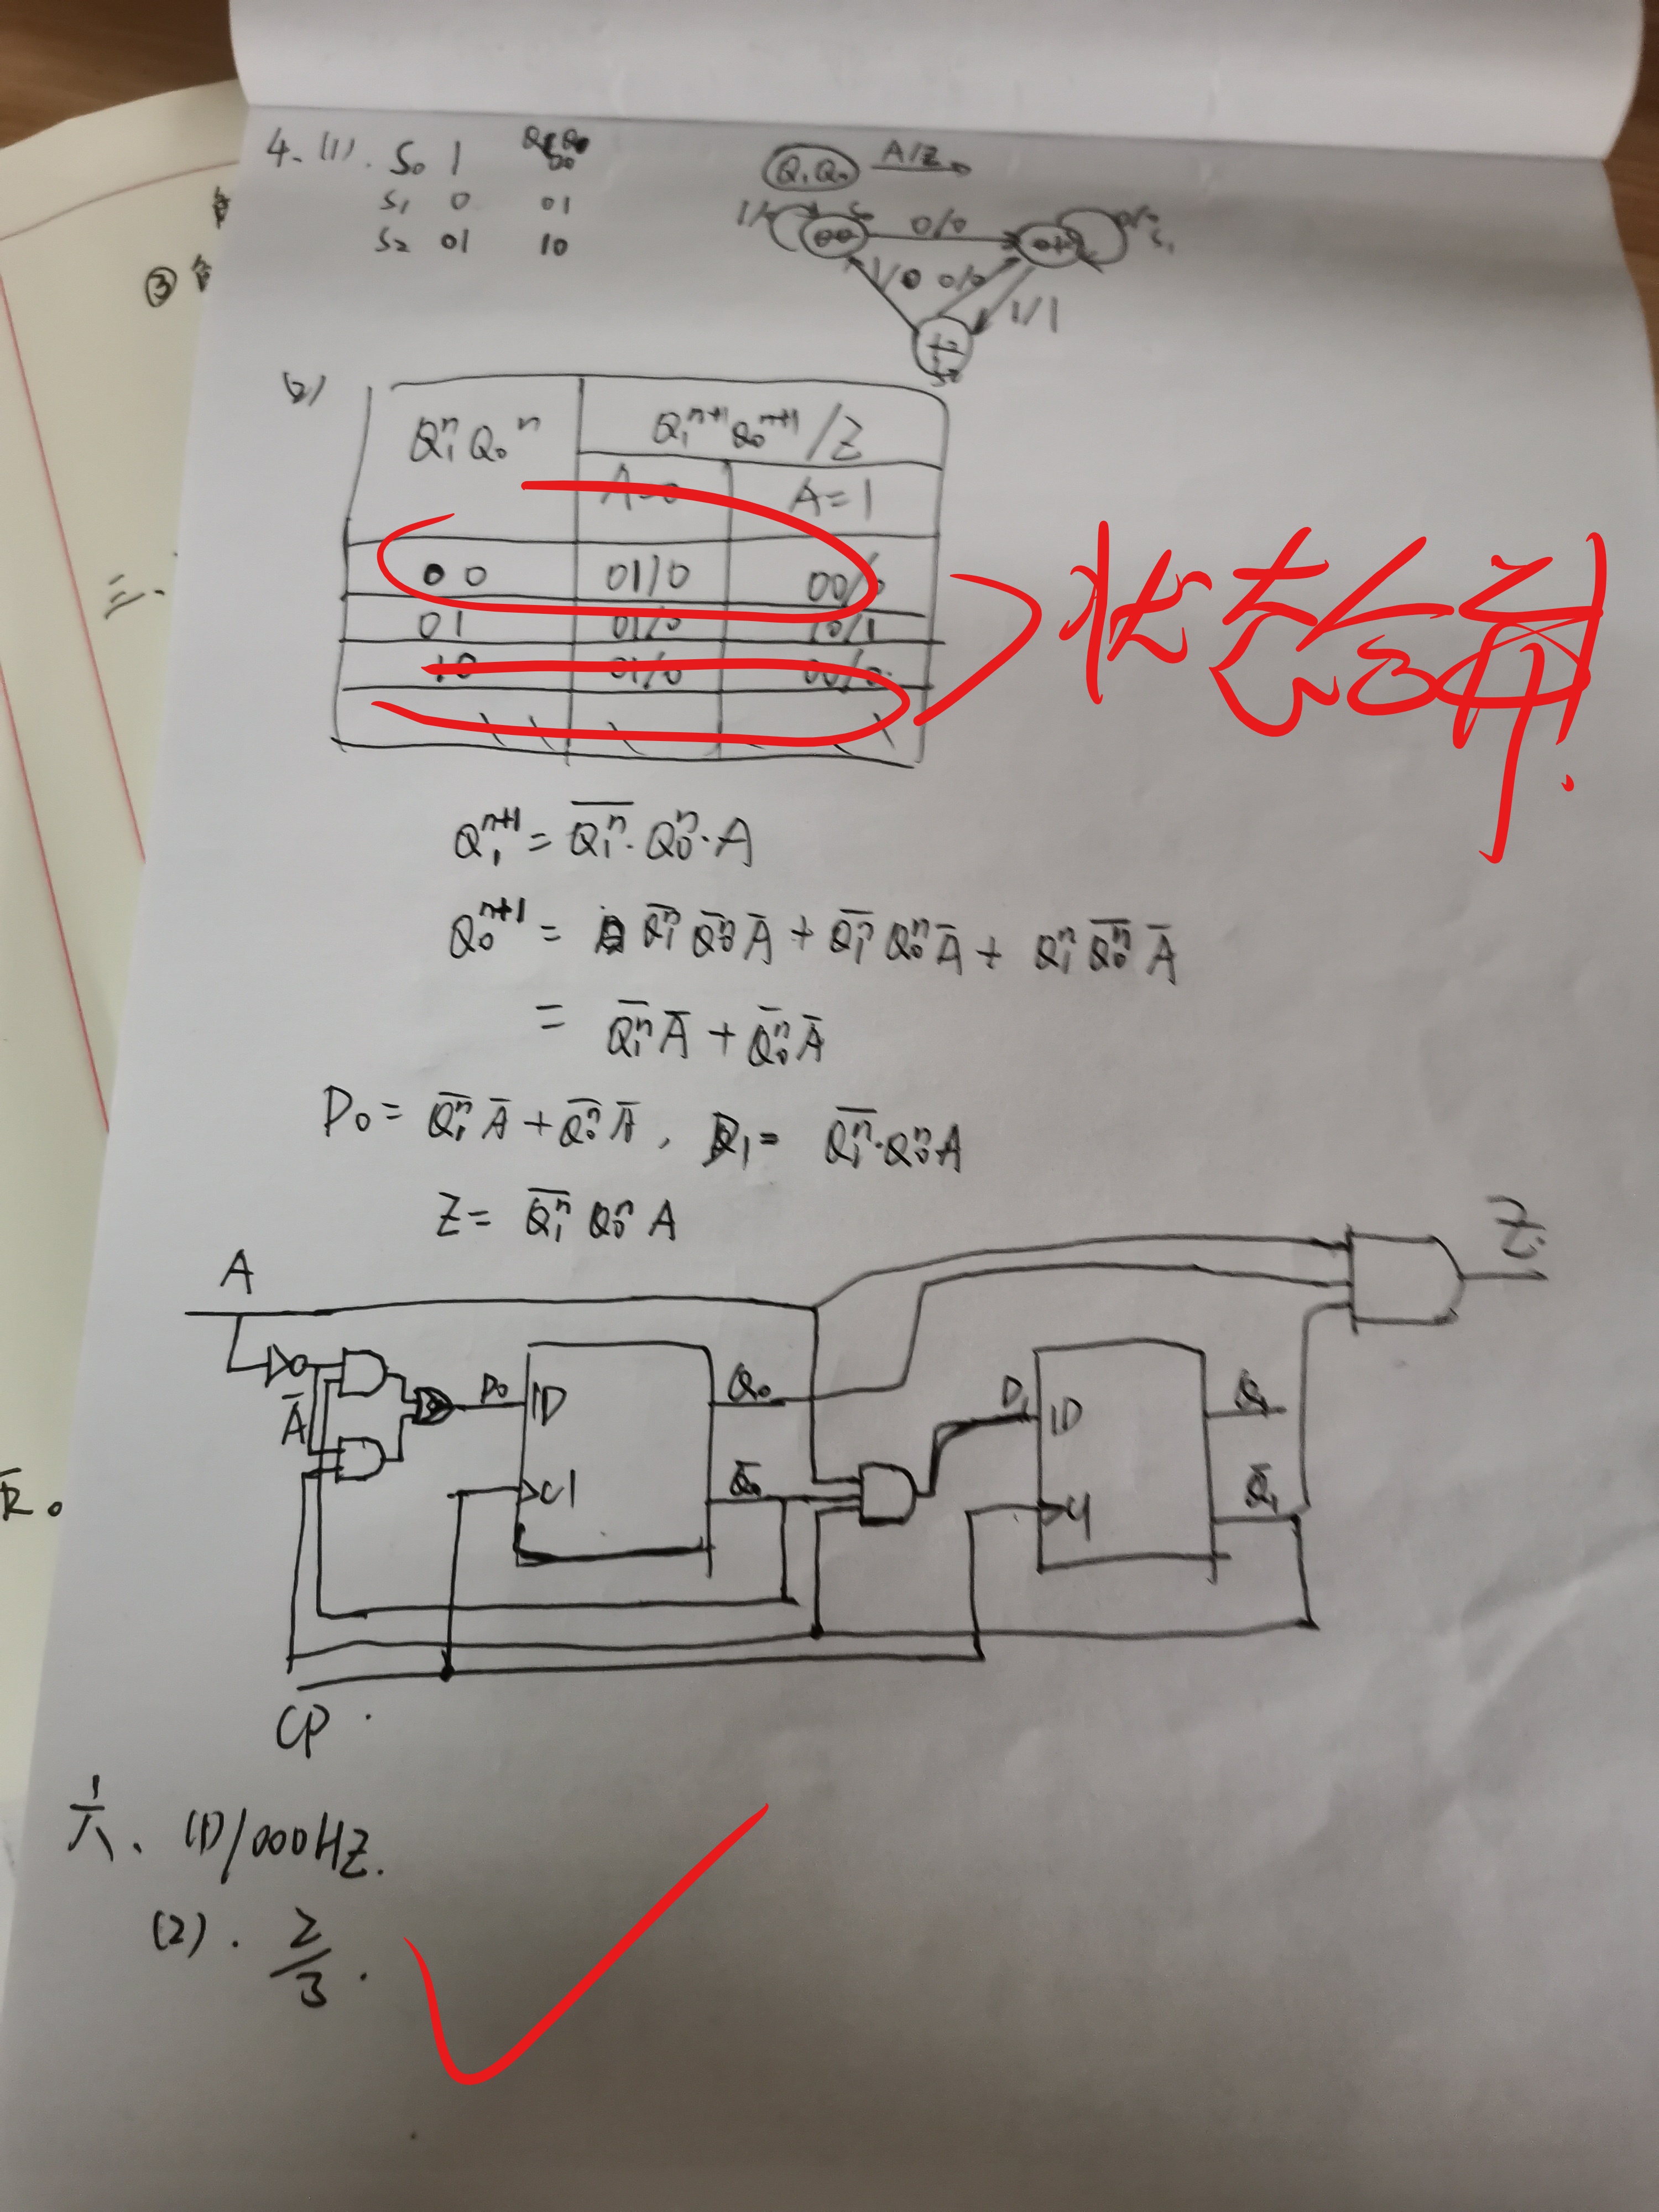 4. (1). S₀ 1
S₁ 0 01
S₂ 01 10
Q₁Q₀ A/Z
0/0
1/0 0/0 1/1
③
三、
(2)
Q₁ⁿ Q₀ⁿ Q₁ⁿ⁺¹Q₀ⁿ⁺¹/Z
A=0 A=1
00 01/0 00/0
01 01/0 10/1
10 01/0 00/0
状态合并!
Q₁ⁿ⁺¹ = Q̅₁ⁿ·Q₀ⁿ·A
Q₀ⁿ⁺¹ = Q̅₁ⁿ Q̅₀ⁿ A̅ + Q̅₁ⁿ Q₀ⁿ A̅ + Q₁ⁿ Q̅₀ⁿ A̅
= Q̅₁ⁿ A̅ + Q̅₀ⁿ A̅
D₀ = Q̅₁ⁿ A̅ + Q̅₀ⁿ A̅, D₁ = Q̅₁ⁿ·Q₀ⁿA
Z = Q̅₁ⁿ Q₀ⁿ A
Z
A
A̅ D₀ 1D Q₀ D₁ 1D Q₁
C1 Q̅₀ C1 Q̅₁
CP
六、(1) 1000HZ.
(2). 2/3.